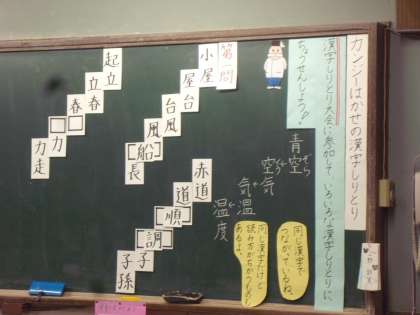 カンジーはかせの漢字しりとり
漢字しりとり大会に参加して、いろいろな漢字しりとりに、
ちょうせんしよう!
第一問
小屋
屋台
台風
風
[船]
長
起立
立春
春□
□力
力走
赤道
道
[順]
[調]
子
子孫
青空
そら
空気
くう
気温
温度
同じ漢字で
つながっているね。
同じ漢字だけど
読み方がちがうものも
あるよ。